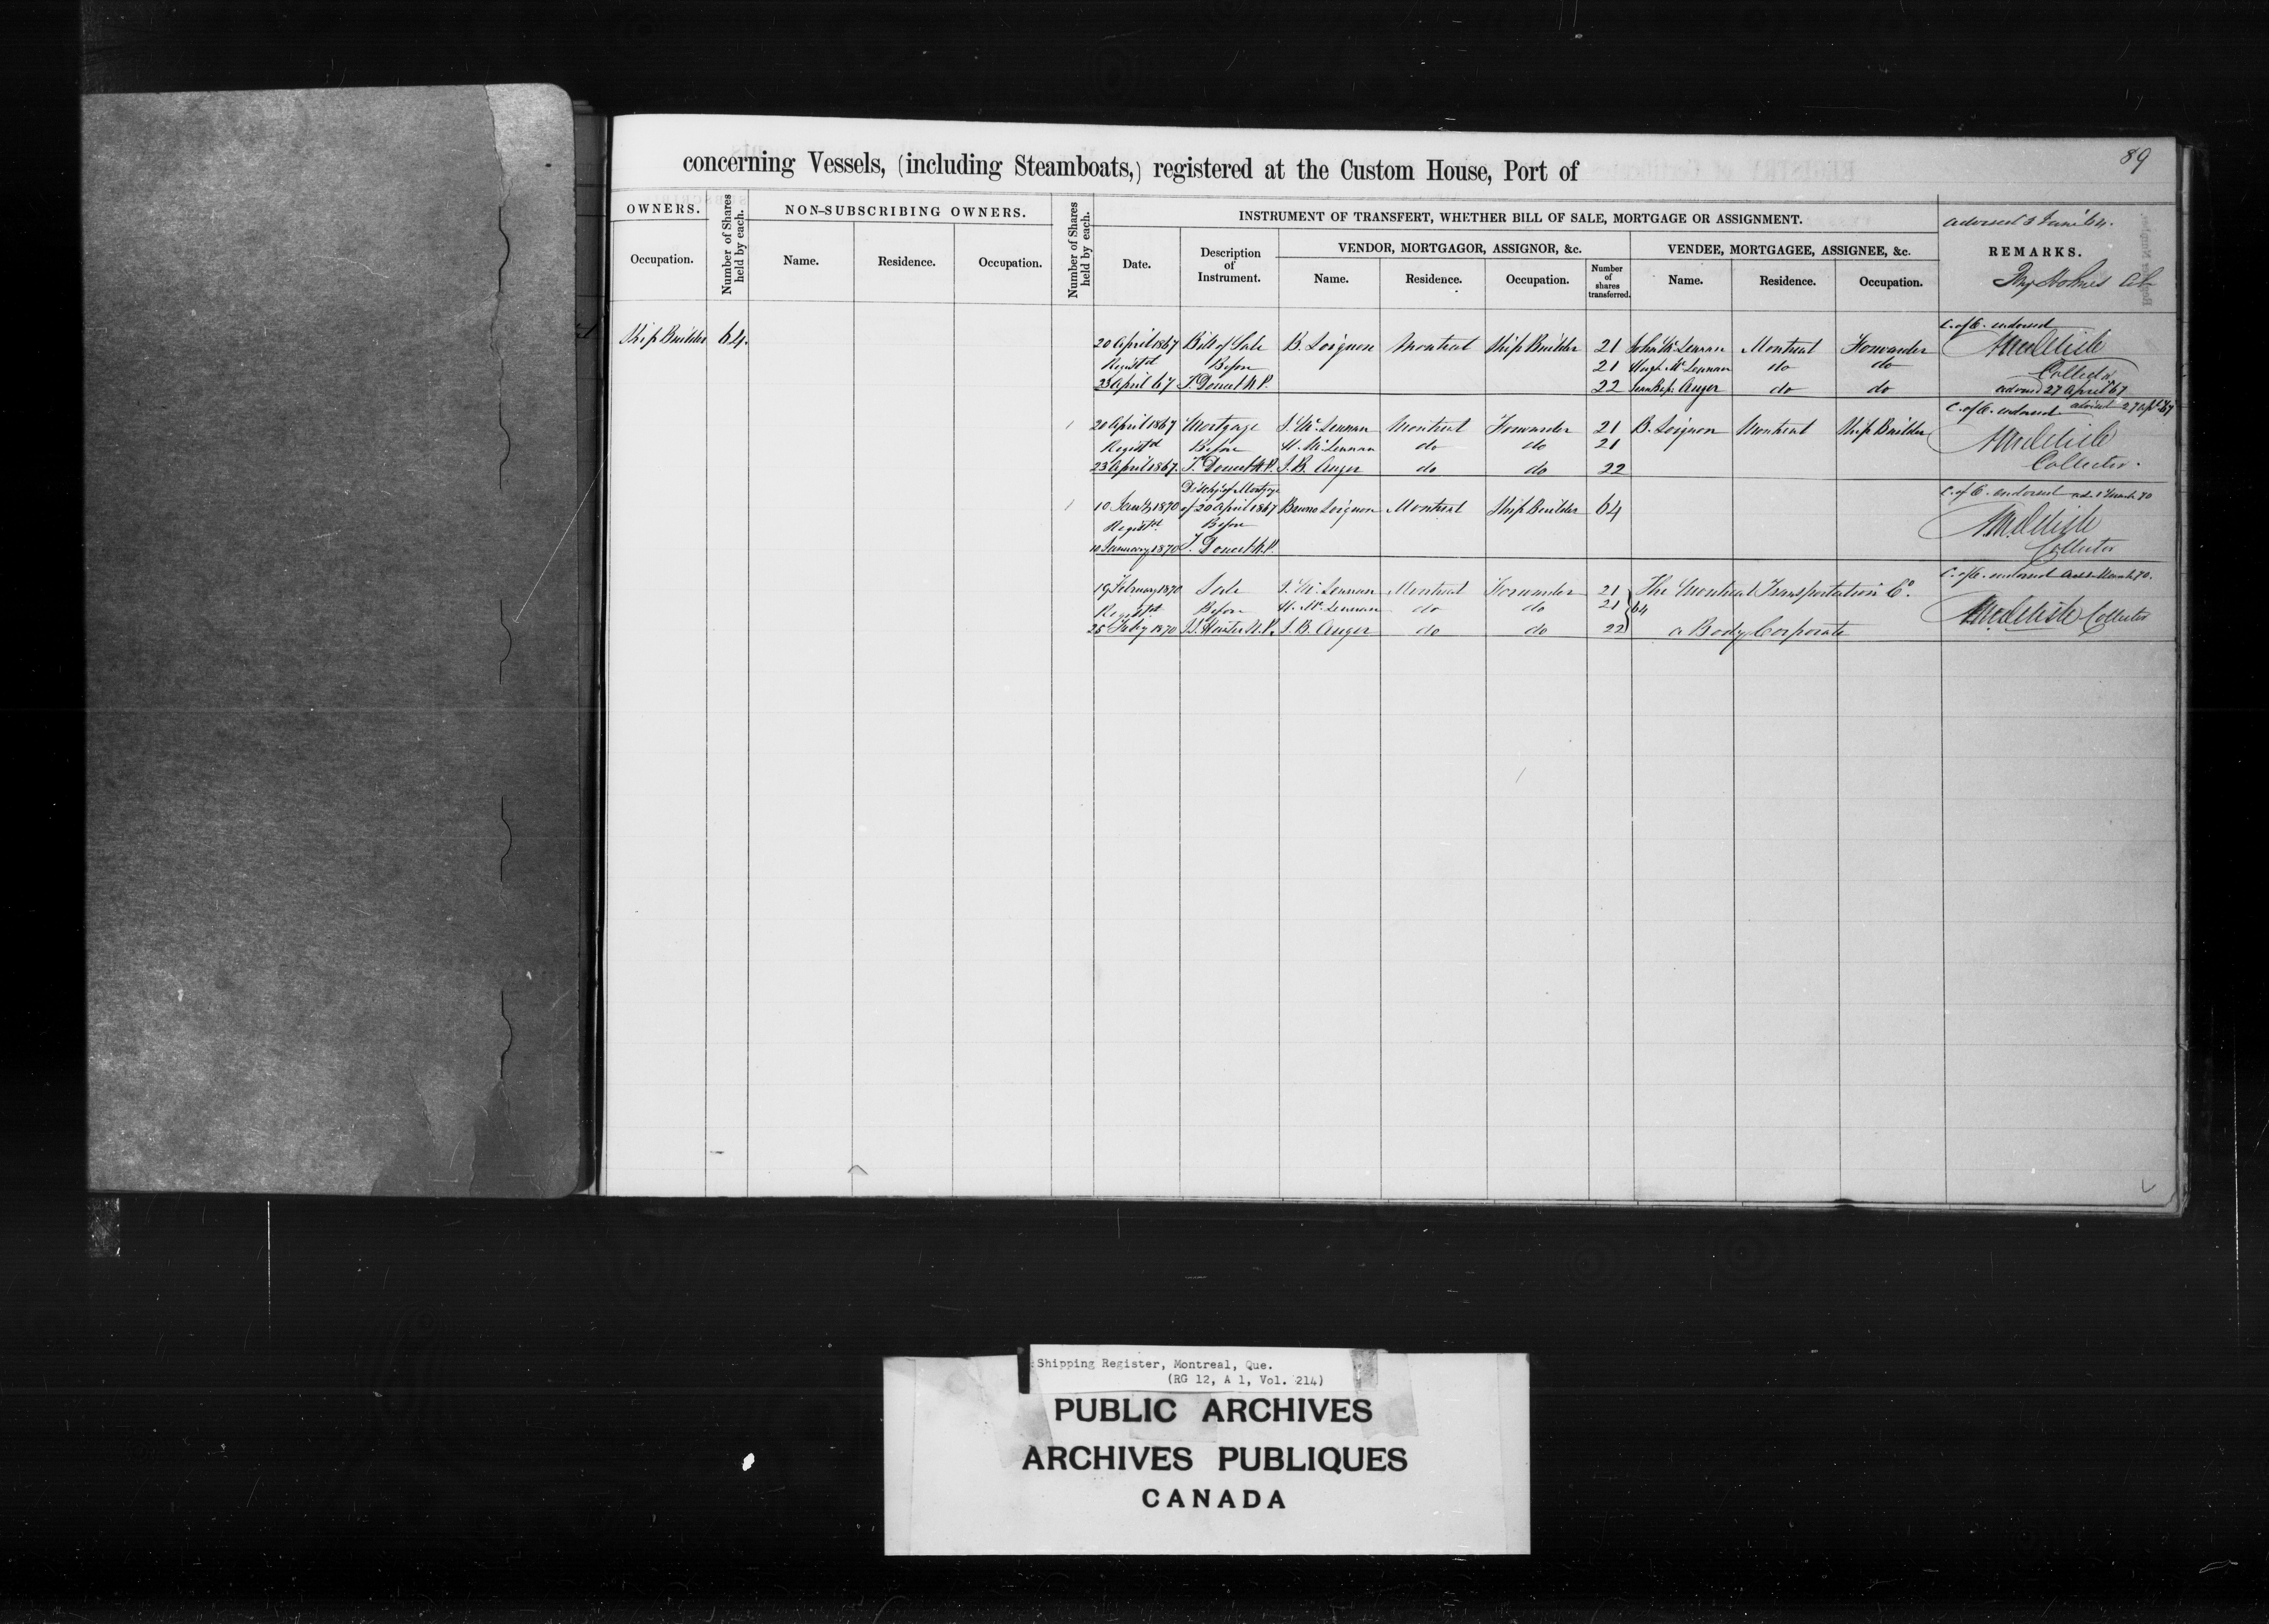 89
concerning Vessels, (including Steamboats,) registered at the Custom House, Port of
OWNERS.
Number of Shares held by each.
NON-SUBSCRIBING OWNERS.
Number of Shares held by each.
INSTRUMENT OF TRANSFERT, WHETHER BILL OF SALE, MORTGAGE OR ASSIGNMENT.
REMARKS.
Occupation.
Name. Residence. Occupation.
Date.
Description of Instrument.
VENDOR, MORTGAGOR, ASSIGNOR, &c.
VENDEE, MORTGAGEE, ASSIGNEE, &c.
Name. Residence. Occupation.
Number of shares transferred.
Name. Residence. Occupation.
Ship Builder 64.
20 April 1867 Bill of Sale B. Loignon Montreal Ship Builder 21 John McLennan Montreal Forwarder C. of O. endorsed
Registd Before 21 Hugh McLennan do do Collector
23 April 67 T. Doucet N.P. 22 Auger do do advised 27 April 67
20 April 1867 Mortgage J. McLennan Montreal Forwarder 21 B. Loignon Montreal Ship Builder C. of O. endorsed
Registd Before H. McLennan do do 21
23 April 1867. T. Doucet N.P. J.B. Auger do do 22 Collector.
Dischge of Mortgage
10 Jany 1870 of 20 April 1867 Bruno Loignon Montreal Ship Builder 64 C. of O. endorsed
Registd Before
10 January 1870 T. Doucet N.P. Collector
19 February 1870 Sale J. McLennan Montreal Forwarder 21 The Montreal Transportation Co. C. of O. endorsed
Registd Before H. McLennan do do 21 64
25 Feby 1870 Hunter N.P. J.B. Auger do do 22 a Body Corporate Collector
Shipping Register, Montreal, Que.
(RG 12, A 1, Vol. 214)
PUBLIC ARCHIVES
ARCHIVES PUBLIQUES
CANADA